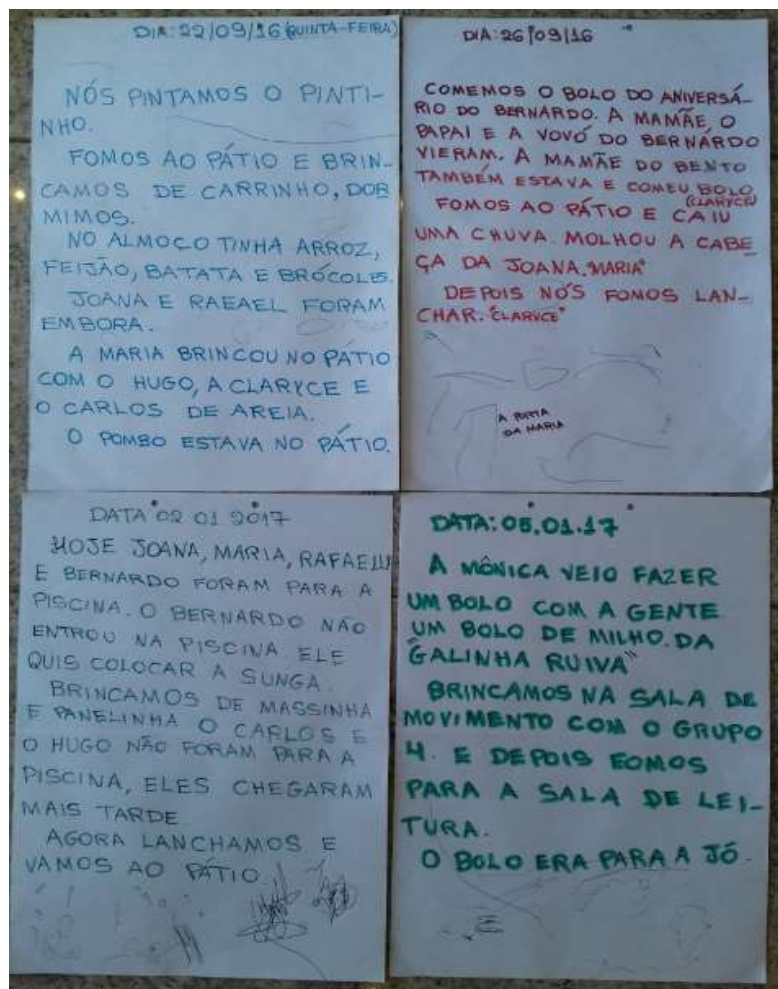 DIA: 22/09/16 (QUINTA-FEIRA)
NÓS PINTAMOS O PINTI-
NHO.
FOMOS AO PÁTIO E BRIN-
CAMOS DE CARRINHO, DOR
MIMOS.
NO ALMOÇO TINHA ARROZ,
FEIJÃO, BATATA E BRÓCOLIS.
JOANA E RAFAEL FORAM
EMBORA.
A MARIA BRINCOU NO PÁTIO
COM O HUGO, A CLARYCE E
O CARLOS DE AREIA.
O POMBO ESTAVA NO PÁTIO.
DIA: 26/09/16
COMEMOS O BOLO DO ANIVERSÁ-
RIO DO BERNARDO. A MAMÃE, O
PAPAI E A VOVÓ DO BERNARDO
VIERAM. A MAMÃE DO BENTO
TAMBÉM ESTAVA E COMEU BOLO
(CLARYCE)
FOMOS AO PÁTIO E CAIU
UMA CHUVA. MOLHOU A CABE
ÇA DA JOANA. "MARIA"
DEPOIS NÓS FOMOS LAN-
CHAR. "CLARYCE"
A PORTA
DA MARIA
DATA 02 01 2017
HOJE JOANA, MARIA, RAFAEL
E BERNARDO FORAM PARA A
PISCINA. O BERNARDO NÃO
ENTROU NA PISCINA. ELE
QUIS COLOCAR A SUNGA.
BRINCAMOS DE MASSINHA
E PANELINHA O CARLOS E
O HUGO NÃO FORAM PARA A
PISCINA, ELES CHEGARAM
MAIS TARDE
AGORA LANCHAMOS E
VAMOS AO PÁTIO
DATA: 05.01.17
A MÔNICA VEIO FAZER
UM BOLO COM A GENTE
UM BOLO DE MILHO. DA
"GALINHA RUIVA"
BRINCAMOS NA SALA DE
MOVIMENTO COM O GRUPO
4. E DEPOIS FOMOS
PARA A SALA DE LEI-
TURA.
O BOLO ERA PARA A JÔ.